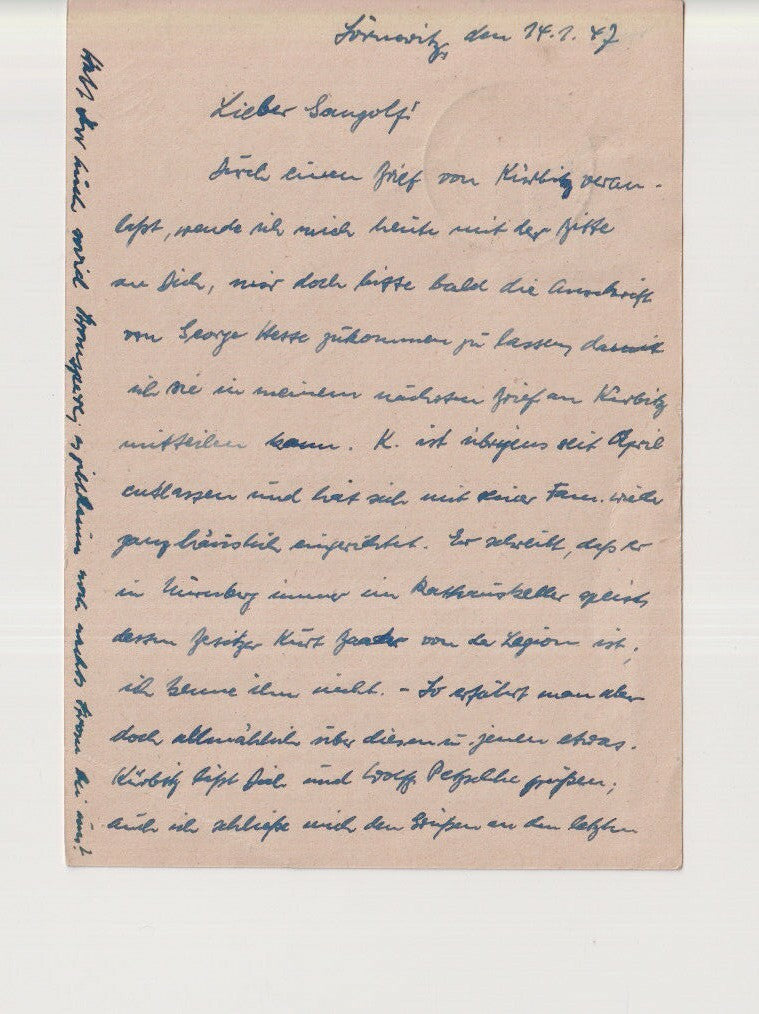 Sörnewitz, den 14.1.47
Lieber Gangolf!
Durch einen Brief von Kürbitz veran-
laßt, wende ich mich heute mit der Bitte
an Dich, mir doch bitte bald die Anschrift
von George Hesse zukommen zu lassen, damit
ich sie in meinem nächsten Brief an Kürbitz
mitteilen kann. K. ist übrigens seit April
entlassen und hat sich mit seiner Fam. wieder
ganz häuslich eingerichtet. Er schreibt, daß er
in Nürnberg immer im Rathauskeller speist,
dessen Besitzer Kurt Baader von der Legion ist;
ich kenne ihn nicht. - So erfährt man aber
doch allmählich über diesen u. jenen etwas.
Kürbitz läßt Dich und Wolff Petzsche grüßen;
auch ich schließe mich den Grüßen an den letzten